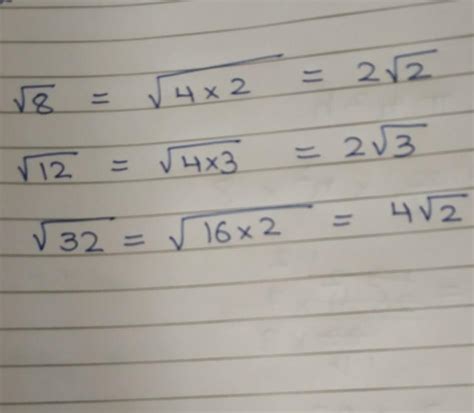 √8 = √4×2 = 2√2
√12 = √4×3 = 2√3
√32 = √16×2 = 4√2